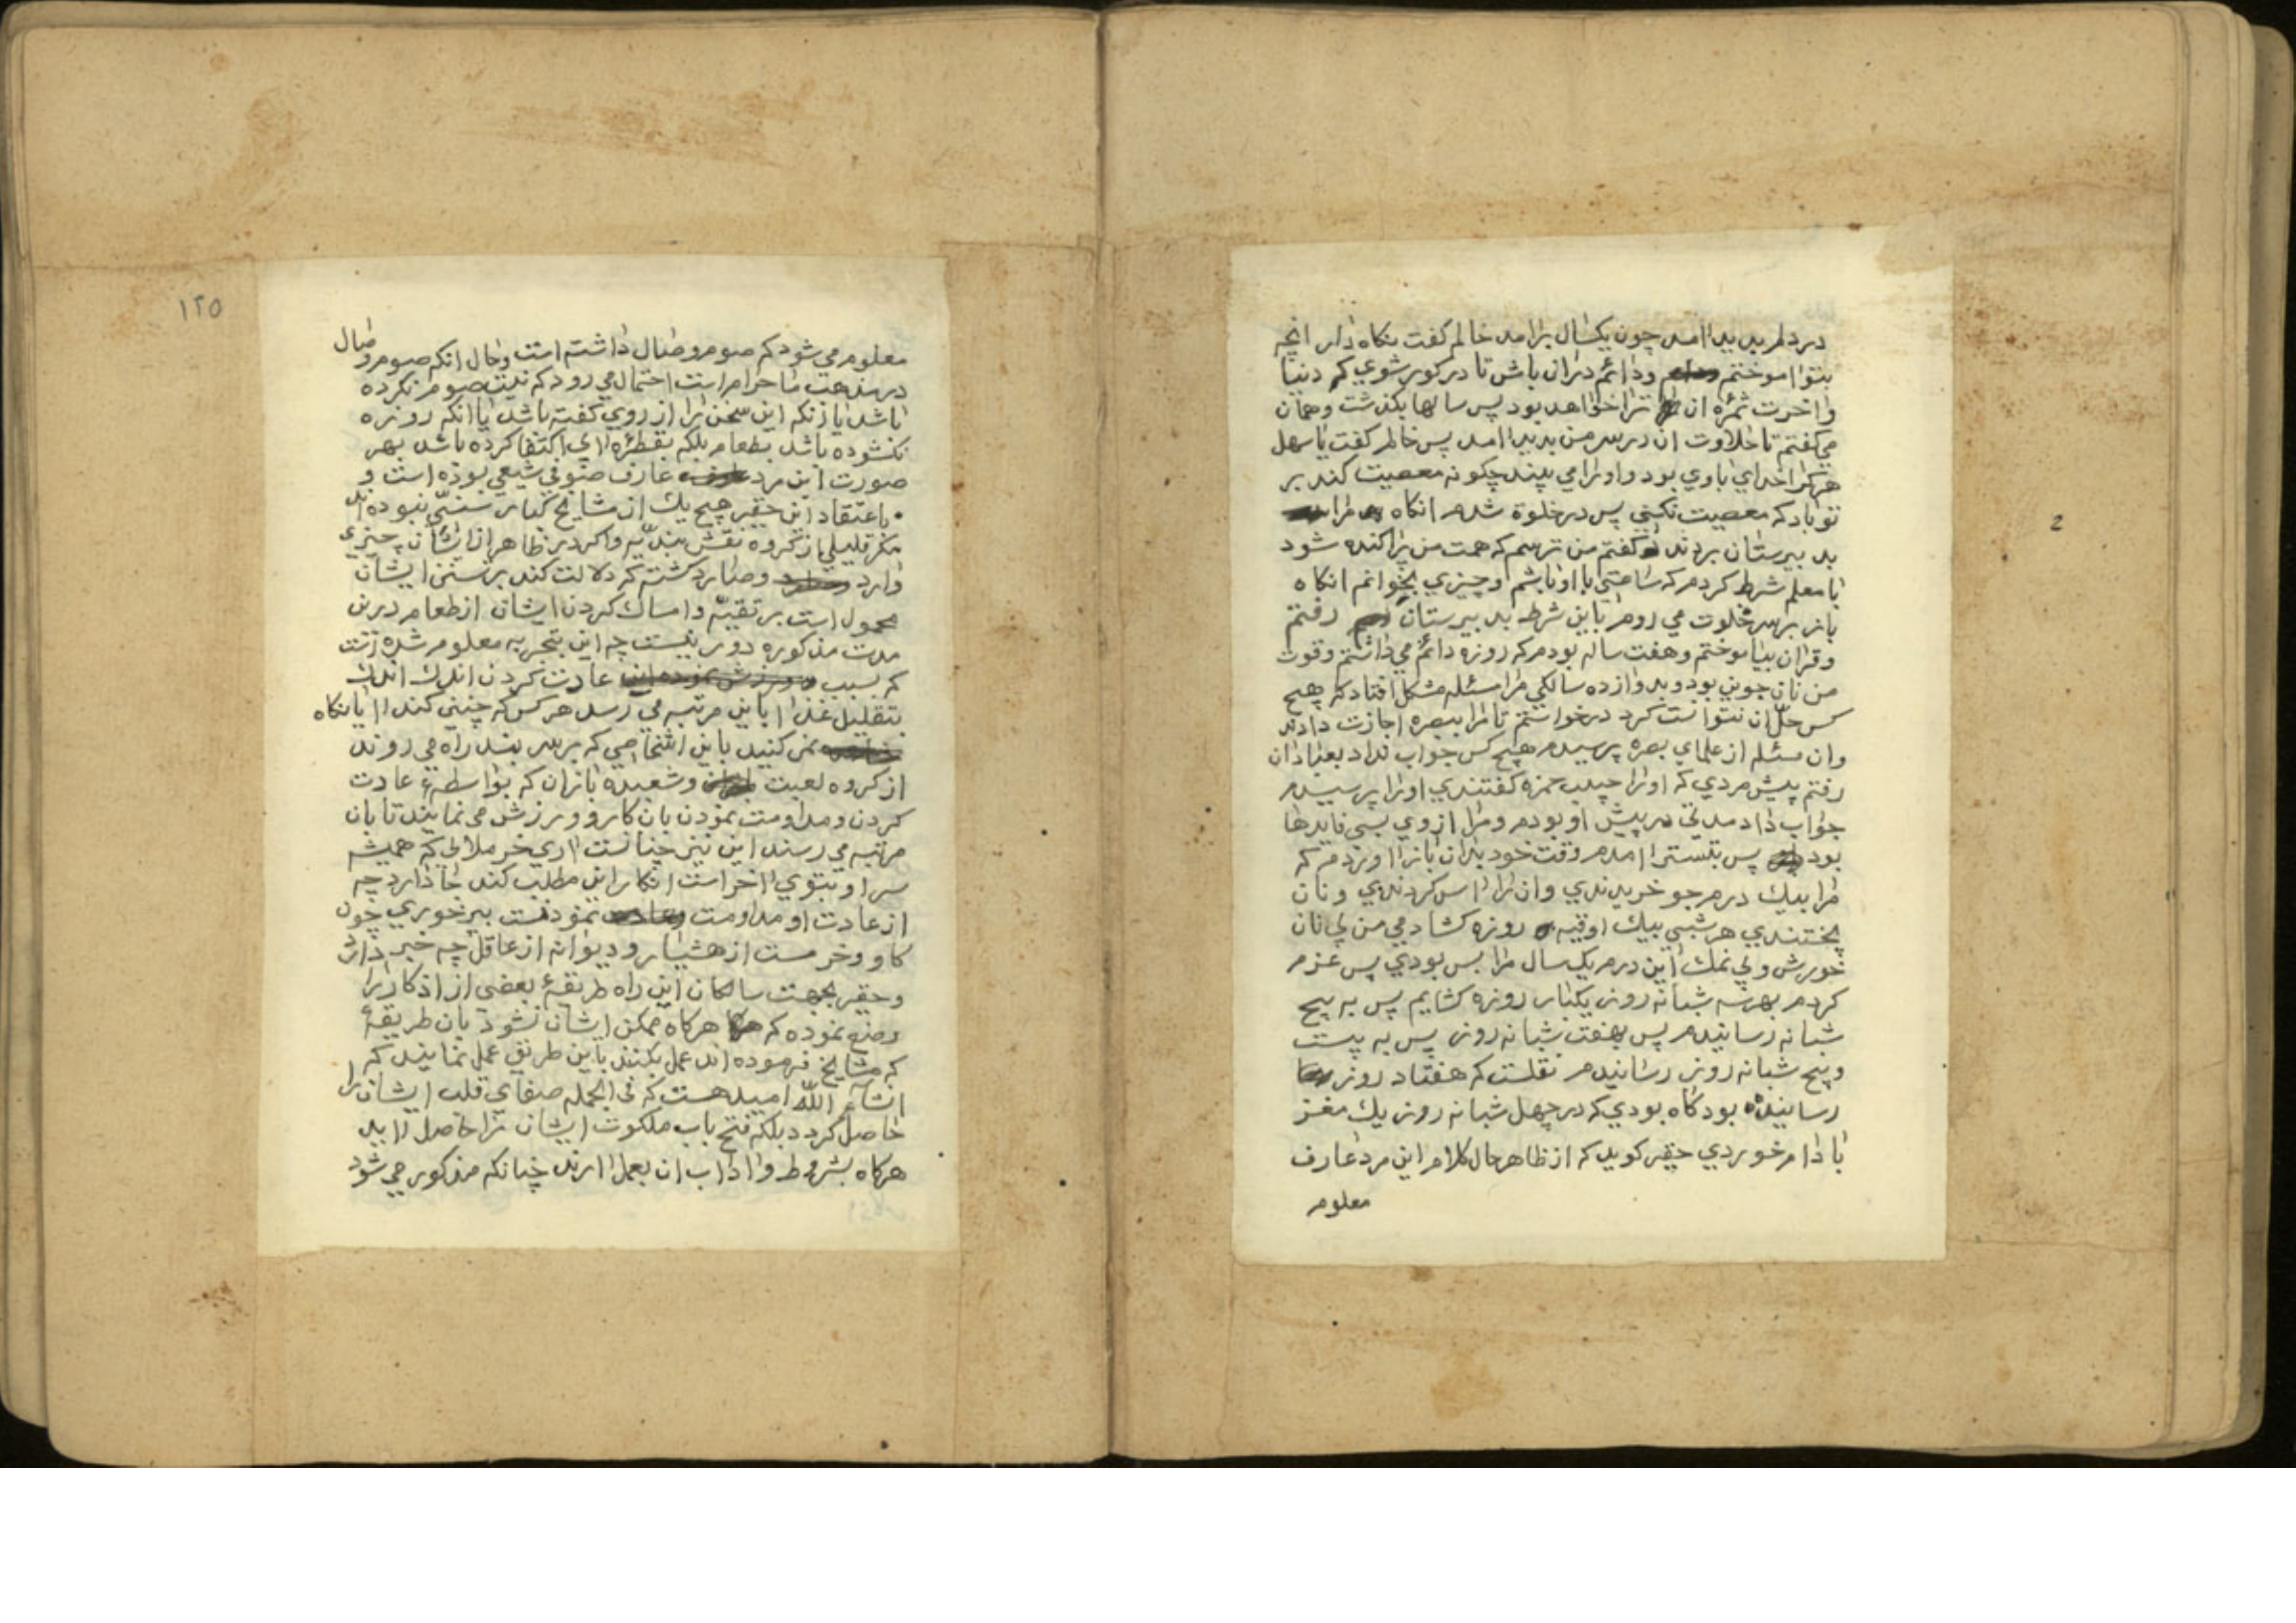 در دلم پدید اامد چون یکسال برامد خالم کفت نکاه دار انچه
بتو اموختم ودائم دران باش تا در کور شوي که دنیا
واخرت ثمره ان ترا خواهد بود پس سالها بکذشت وهمان
می کفتم تا حلاوت ان در سر من پدید اامد پس خالم کفت یا سهل
هرکرا خدای باوي بود واورا می بیند چکونه معصیت کند بر
تو باد که معصیت نکني پس در خلوة شدم انکاه مرا
بد بیرستان بردند کفتم من ترسم که همت من پراکنده شود
با معلم شرط کردم که ساعتي با او باشم وچیزي بخوانم انکاه
باز برسر خلوت می روم باین شرط بد بیرستان رفتم
وقران بیاموختم وهفت ساله بودم که روزه دائم می داشتم وقوت
من نان جوین بود وبد وازده سالکي مرا مسئله مشکل افتاد که هیچ
کس حل ان نتوانست کرد درخواستم تا مرا ببصره اجازت دادند
وان مسئله از علماي بصره پرسیدم هیچ کس جواب نداد بعبادان
رفتم پیش مردي که اورا حبیب حمزه کفتندي اورا پرسیدم
جواب داد مدتي در پیش او بودم ومرا از وي بسی فایدها
بود پس بتستر اامدم وقت خود بدان باز اوردم که
مرا بیك درم جو خریدندي وان را اس کردندي ونان
پختندي هر شبی بیك اوقیه روزه کشادمي من بي نان
خورش وبي نمك این درم یک سال مرا بس بودي پس عزم
کردم بهر سه شبانه روز یکبار روزه کشایم پس به پنج
شبانه رسانیدم پس بهفت شبانه روز پس به بیست
وپنج شبانه روز رسانیدم نقلست که هفتاد روز
رسانیده بود کاه بودي که در چهل شبانه روز یك مغز
بادام خوردي حقیر کوید که از ظاهر حال کلام این مرد عارف
معلوم
2
۱۲۵
معلوم می شود که صوم وصال داشته است وحال انکه صوم وصال
در مذهب ما حرام است احتمال می رود که نیت صوم نکرده
باشد یا زنکه این سخن را از روي کفته باشد یا انکه روزه
نکشوده باشد بطعام بلکه بقطره اي اکتفا کرده باشد بهر
صورت این مرد عارف صوفي شیعي بوده است و
باعتقاد این حقیر هیچ یك از مشایخ کبار سنی نبوده اند
مکر قلیلي از کروه نقش بندیه واکر در ظاهر از ایشان چیزی
وارد وصادر کشته که دلالت کند بر سنن ایشان
محمول است بر تقیه وامساك کردن ایشان از طعام درین
مدت مذکوره دور نیست چه این بتجربه معلوم شده است
که بسبب عادت کردن اندك اندك
بتقلیل غذا باین مرتبه می رسد هر کس که چنین کند اایا نکاه
نمی کنید باین اشخاصی که بر سر بند راه می روند
از کروه لعبت وشعبده بازان که بواسطهء عادت
کردن ومداومت نمودن بان کار وورزش می نمایند تا بان
مرتبه می رسند این نیز چنانست اري خر ملائی که همیشه
سر او بتوي ااخر است انکار این مطلب کند جا دارد چه
از عادت او مداومت نمودنست بپر خوري چون
کاو وخر مست از هشیار ودیوانه از عاقل چه خبر دارد
وحقیر بجهت سالکان این راه طریقهٔ بعضی از اذکار را
وضع نموده که هرکاه ممکن ایشان نشود بان طریقهٔ
که مشایخ فرموده اند عمل بکنند باین طریق عمل نمایند که
انشاء الله امید هست که فی الجمله صفاي قلب ایشان را
حاصل کردد بلکه فتح باب ملکوت ایشان را حاصل اید
هرکاه بشروط وااداب ان بعمل اارند چنانکه مذکور می شود